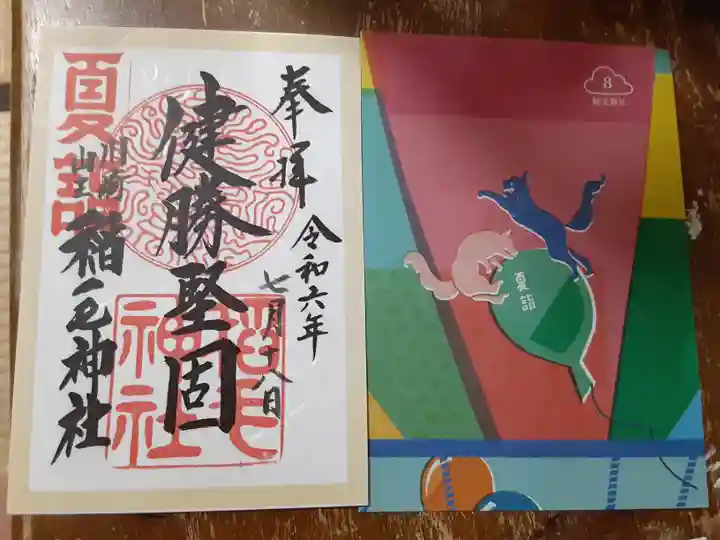 奉拝
令和六年
七月十八日
健勝堅固
夏詣
川崎
山王
稲毛神社
稲毛
神社
8
夏詣